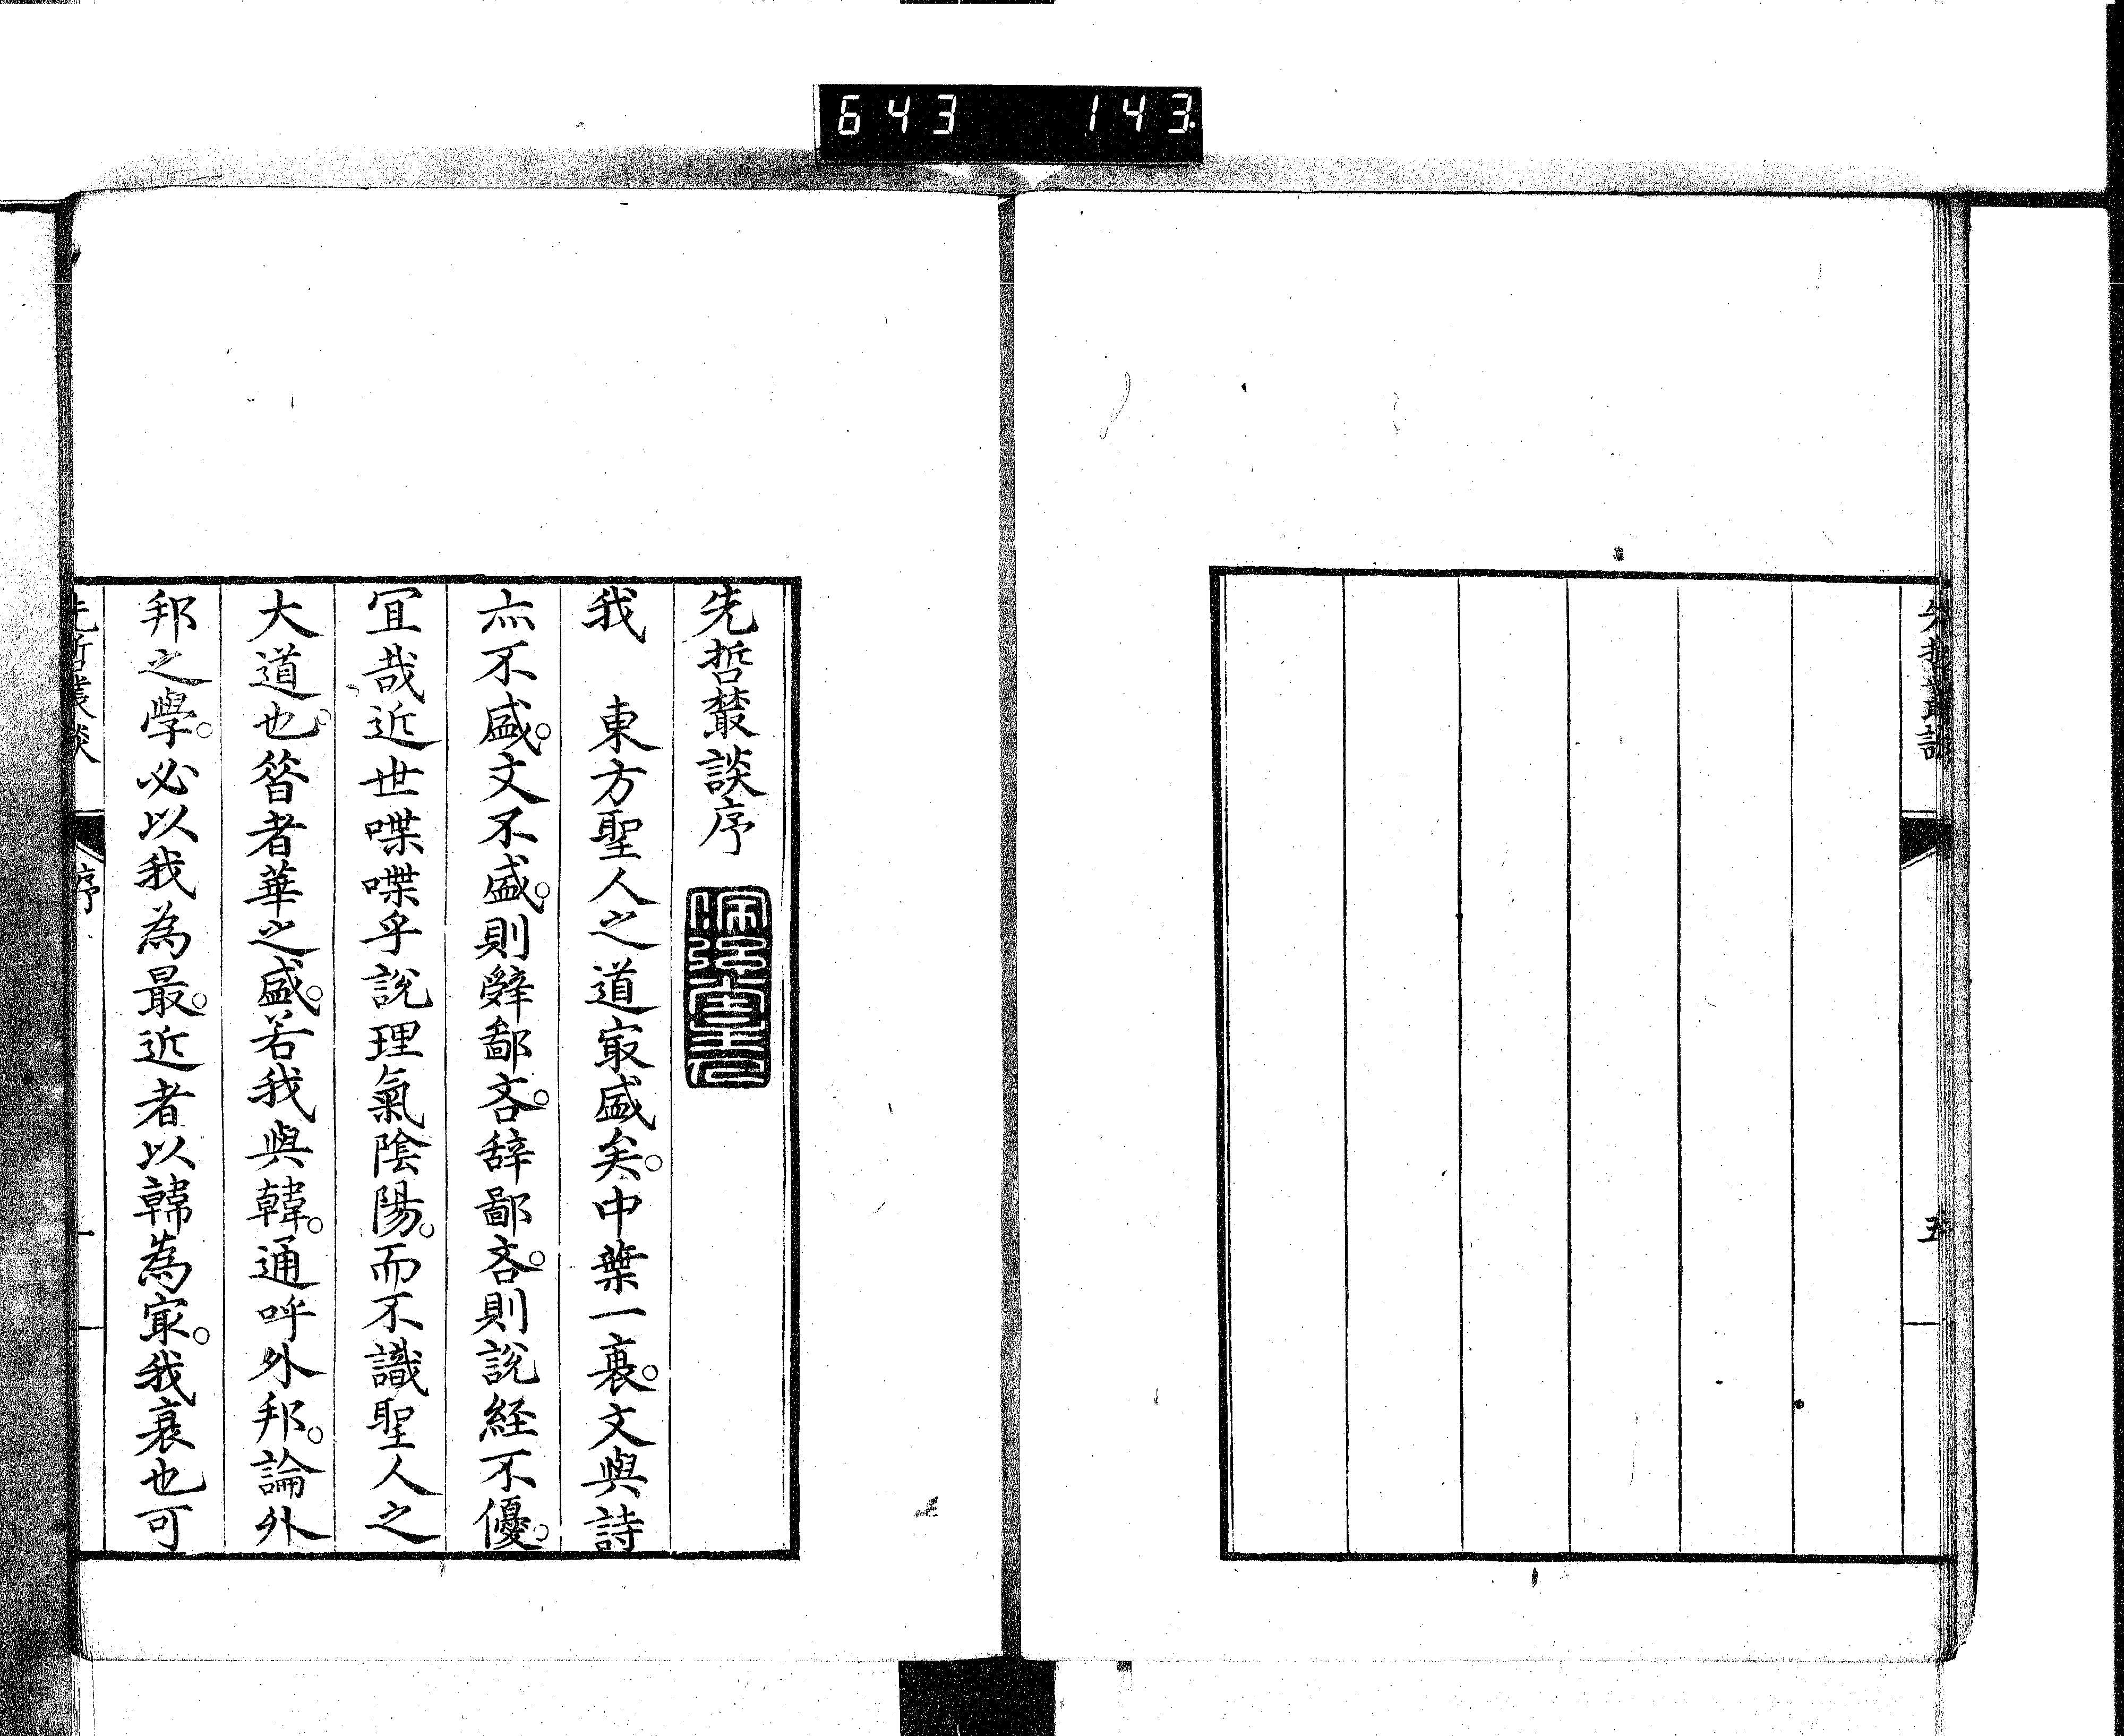 643 143
五
先哲叢談序
我 東方聖人之道㝡盛矣。中葉一衰。文與詩
亦不盛。文不盛。則辭鄙吝。辭鄙吝。則說經不優。
宜哉近世喋喋乎說理氣陰陽。而不識聖人之
大道也。昝者華之盛。若我與韓。通呼外邦。論外
邦之學。必以我為最。近者以韓為㝡。我衰也可
先哲叢談 序 一